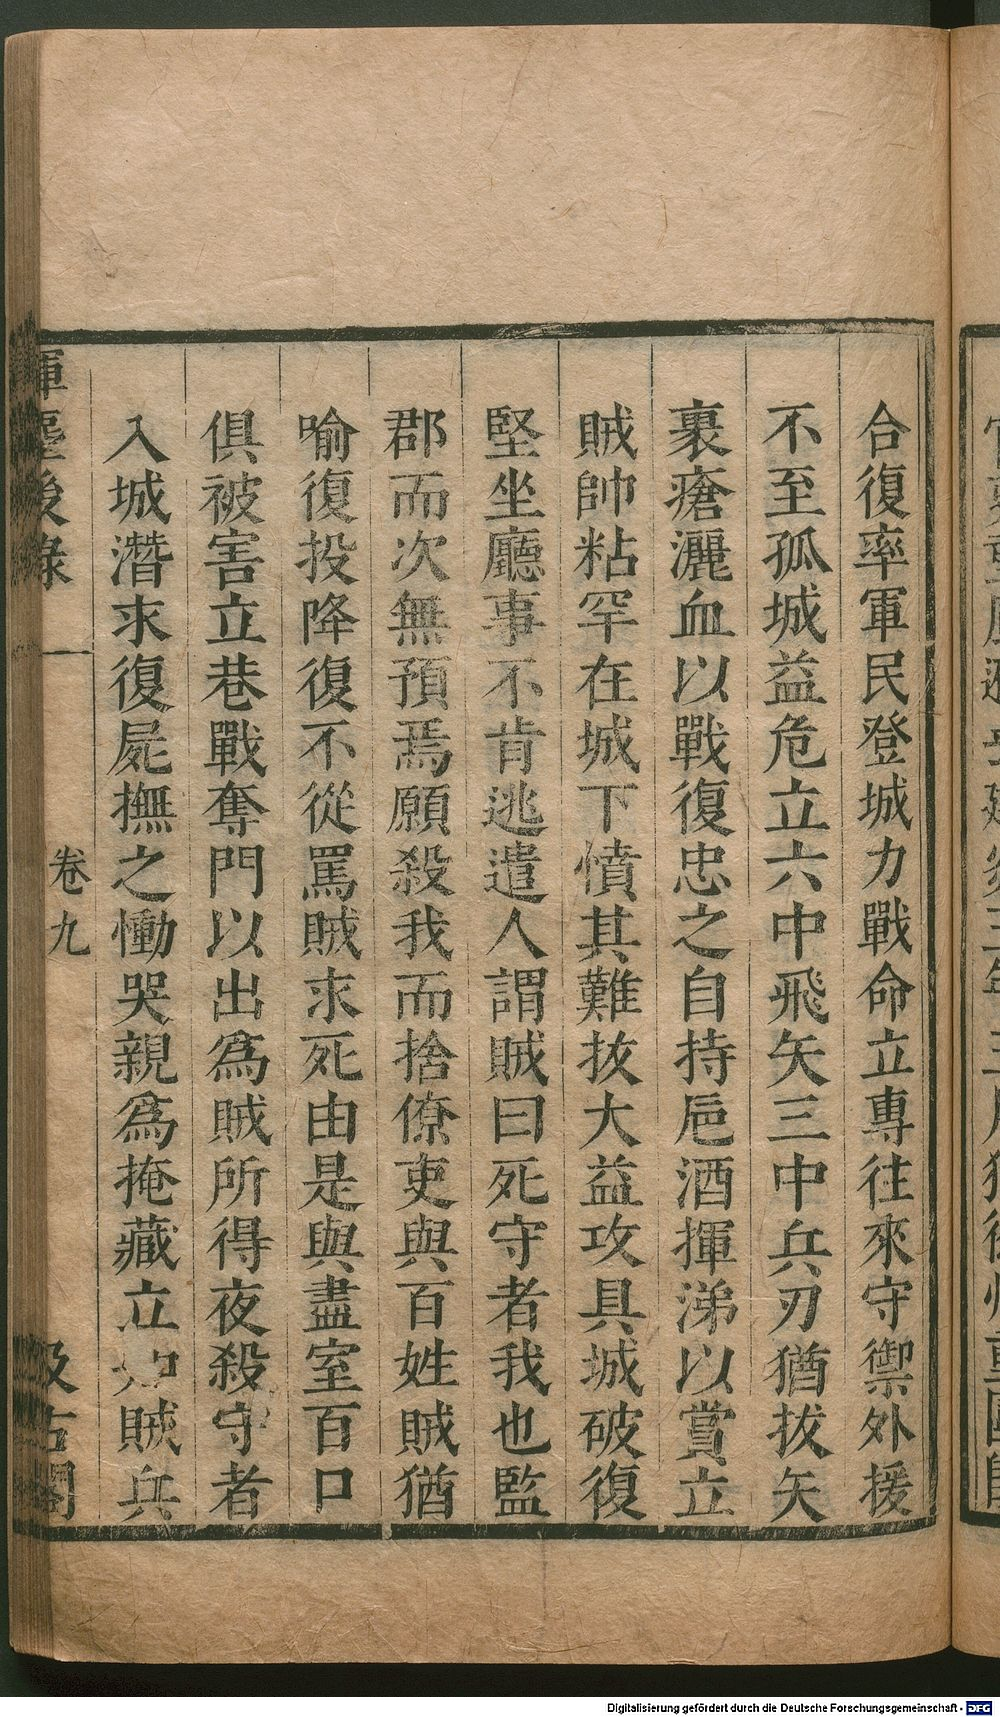 合復率軍民登城力戰命立專往來守禦外援
不至孤城益危立六中飛矢三中兵刃猶拔矢
裹瘡灑血以戰復忠之自持巵酒揮涕以賞立
賊帥粘罕在城下憤其難拔大益攻具城破復
堅坐廳事不肯逃遣人謂賊曰死守者我也監
郡而次無預焉願殺我而捨僚吏與百姓賊猶
喻復投降復不從罵賊求死由是與盡室百口
俱被害立巷戰奪門以出爲賊所得夜殺守者
入城潛求復屍撫之慟哭親爲掩藏立知賊兵
揮麈後錄 卷九 汲古閣
Digitalisierung gefördert durch die Deutsche Forschungsgemeinschaft - DFG